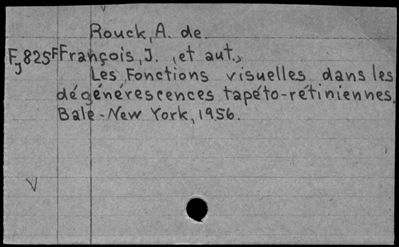 Rouck, A. de.
Fj825F François, J., et aut.,
Les Fonctions visuelles dans les
dégénérescences tapéto-rétiniennes.
Bale-New York, 1956.